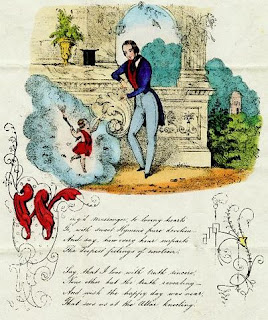 Wing'd Messenger, to loving hearts
Go, with sweet Hymen's pure devotion
And say, how every hour imparts
The deepest feelings of emotion.
Say, that I love with truth sincere,
None other but the truth revealing
And wish the happy day was near,
That saw us at the Altar kneeling.